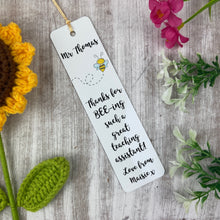 Mr Thomas
Thanks for
BEE-ing
such a
great
teaching
assistant!
Love from
Maisie x